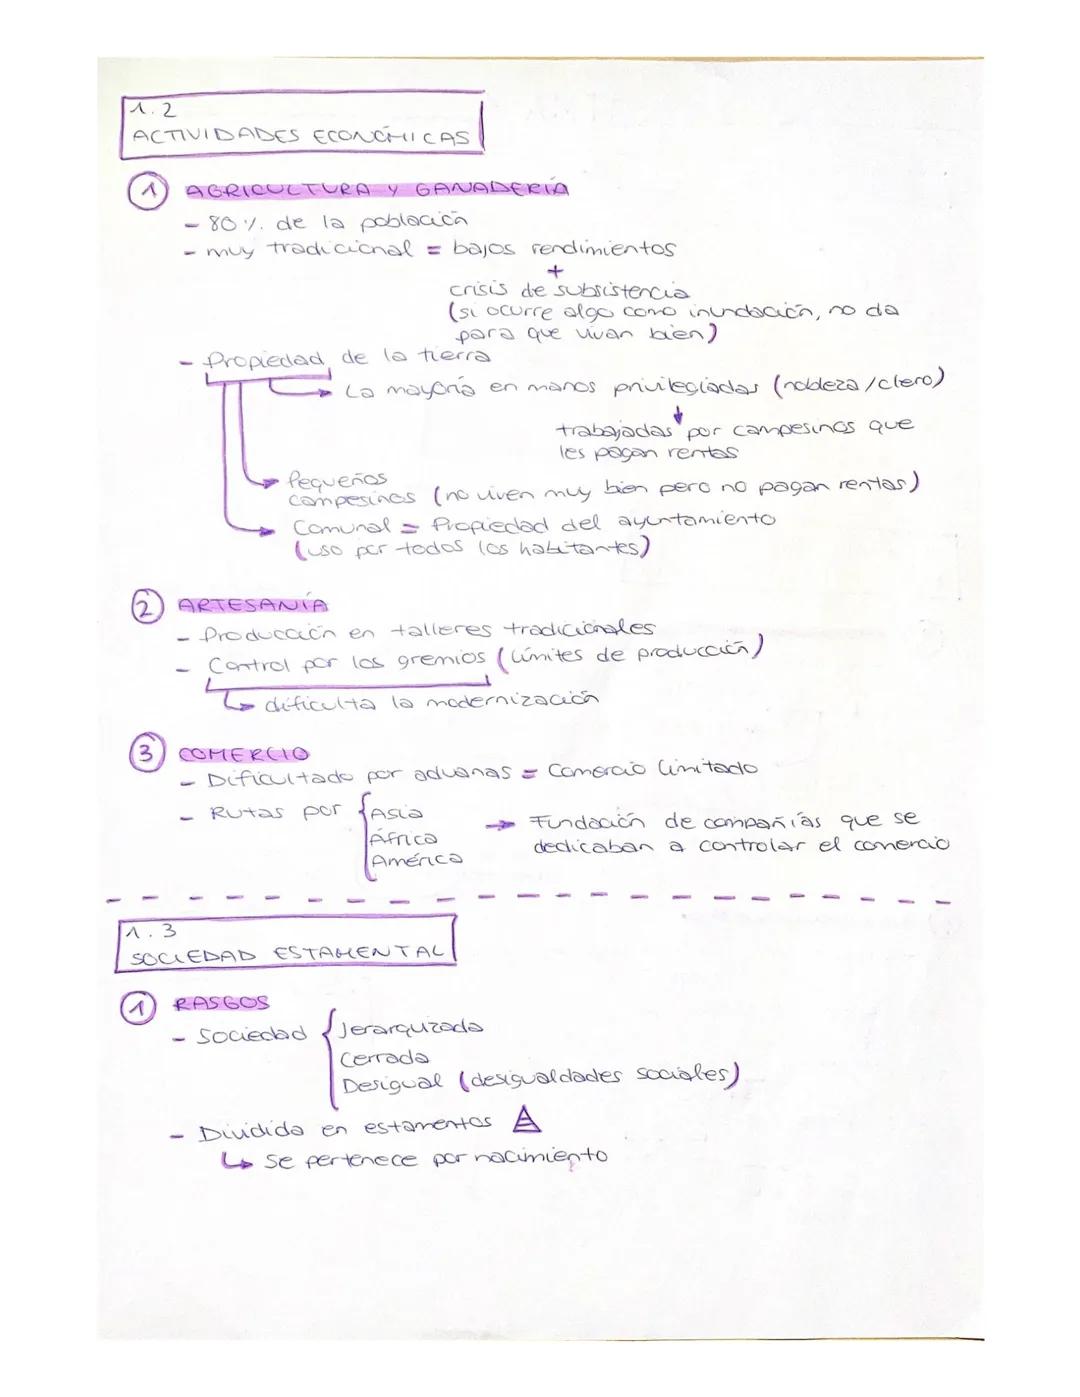 1.2
ACTIVIDADES ECONÓMICAS
1 AGRICULTURA Y GANADERÍA
- 80 % de la población
- muy tradicional = bajos rendimientos
+
crisis de subsistencia
(si ocurre algo como inundación, no da
para que vivan bien)
- Propiedad de la tierra
La mayoría en manos privilegiadas (nobleza/clero)
trabajadas por campesinos que
les pagan rentas
Pequeños
campesinos (no viven muy bien pero no pagan rentas)
Comunal = Propiedad del ayuntamiento
(uso por todos los habitantes)
2 ARTESANÍA
- Producción en talleres tradicionales
- Control por los gremios (límites de producción)
dificulta la modernización
3 COMERCIO
- Dificultado por aduanas = Comercio limitado
- Rutas por { Asia → Fundación de compañías que se
África dedicaban a controlar el comercio
América
1.3
SOCIEDAD ESTAMENTAL
1 RASGOS
- Sociedad { Jerarquizada
Cerrada
Desigual (desigualdades sociales)
- Dividida en estamentos
↳ Se pertenece por nacimiento